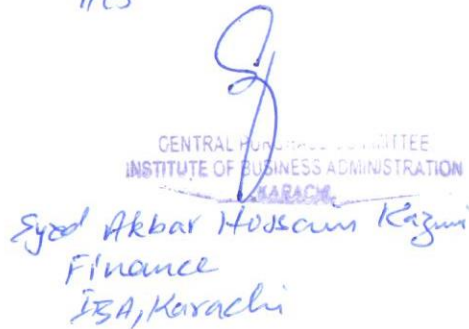 CENTRAL PURCHASE COMMITTEE
INSTITUTE OF BUSINESS ADMINISTRATION
KARACHI
Syed Akbar Hussain Kazmi
Finance
IBA, Karachi